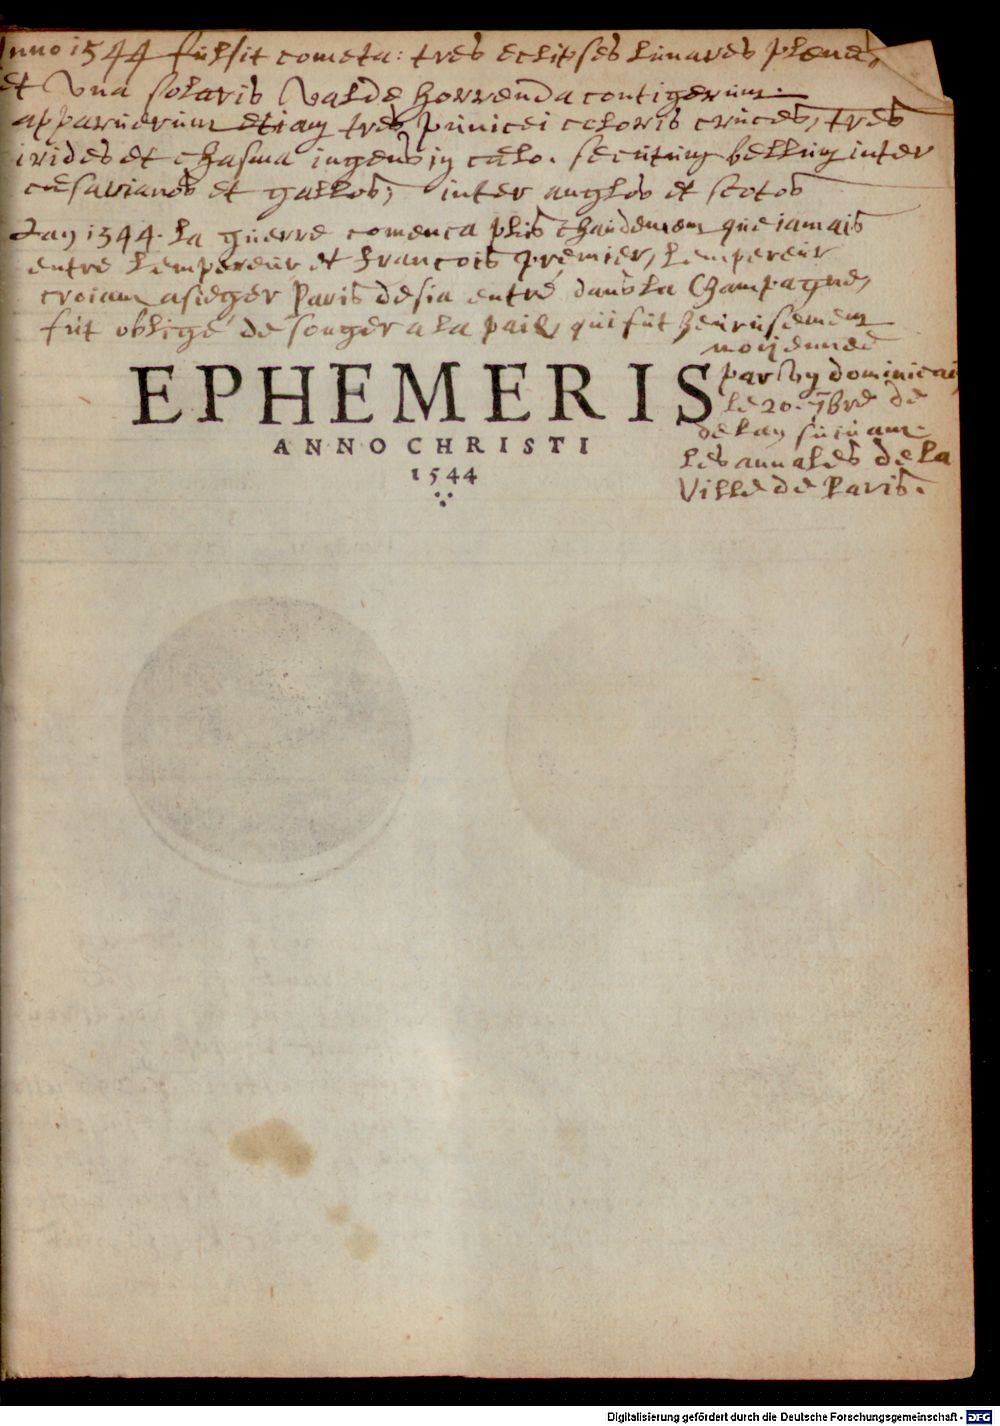 Anno 1544 fulsit cometa: tres eclipses lunares plenæ,
et una solaris valde horrenda contigerunt.
apparuerunt etiam tres punicei coloris cruces, tres
irides et chasma ingens in cælo. secutum bellum inter
cæsarianos et gallos; inter anglos et scotos
Lan 1544. la guerre comenca plus chaudement que iamais
entre lempereur et francois premier, lempereur
croiant asieger Paris desia entré dans la Champagne,
fut obligé de songer a la paix, qui fut heureusement
moyennee
par un dominicain
le 20. 7bre de
de lan suiuant.
les annales de la
Ville de Paris.
EPHEMERIS
ANNO CHRISTI
1544
Digitalisierung gefördert durch die Deutsche Forschungsgemeinschaft - DFG